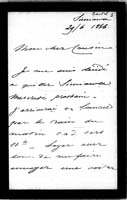 Sumawa
29/6 1866
Mon cher Cousin
Je me suis décidé
à quitter Sumawa
Mercredi prochain.
J'arriverai
par le train du
matin c a d vers
11h. Soyez assez
bon de me faire
envoyer une voiture